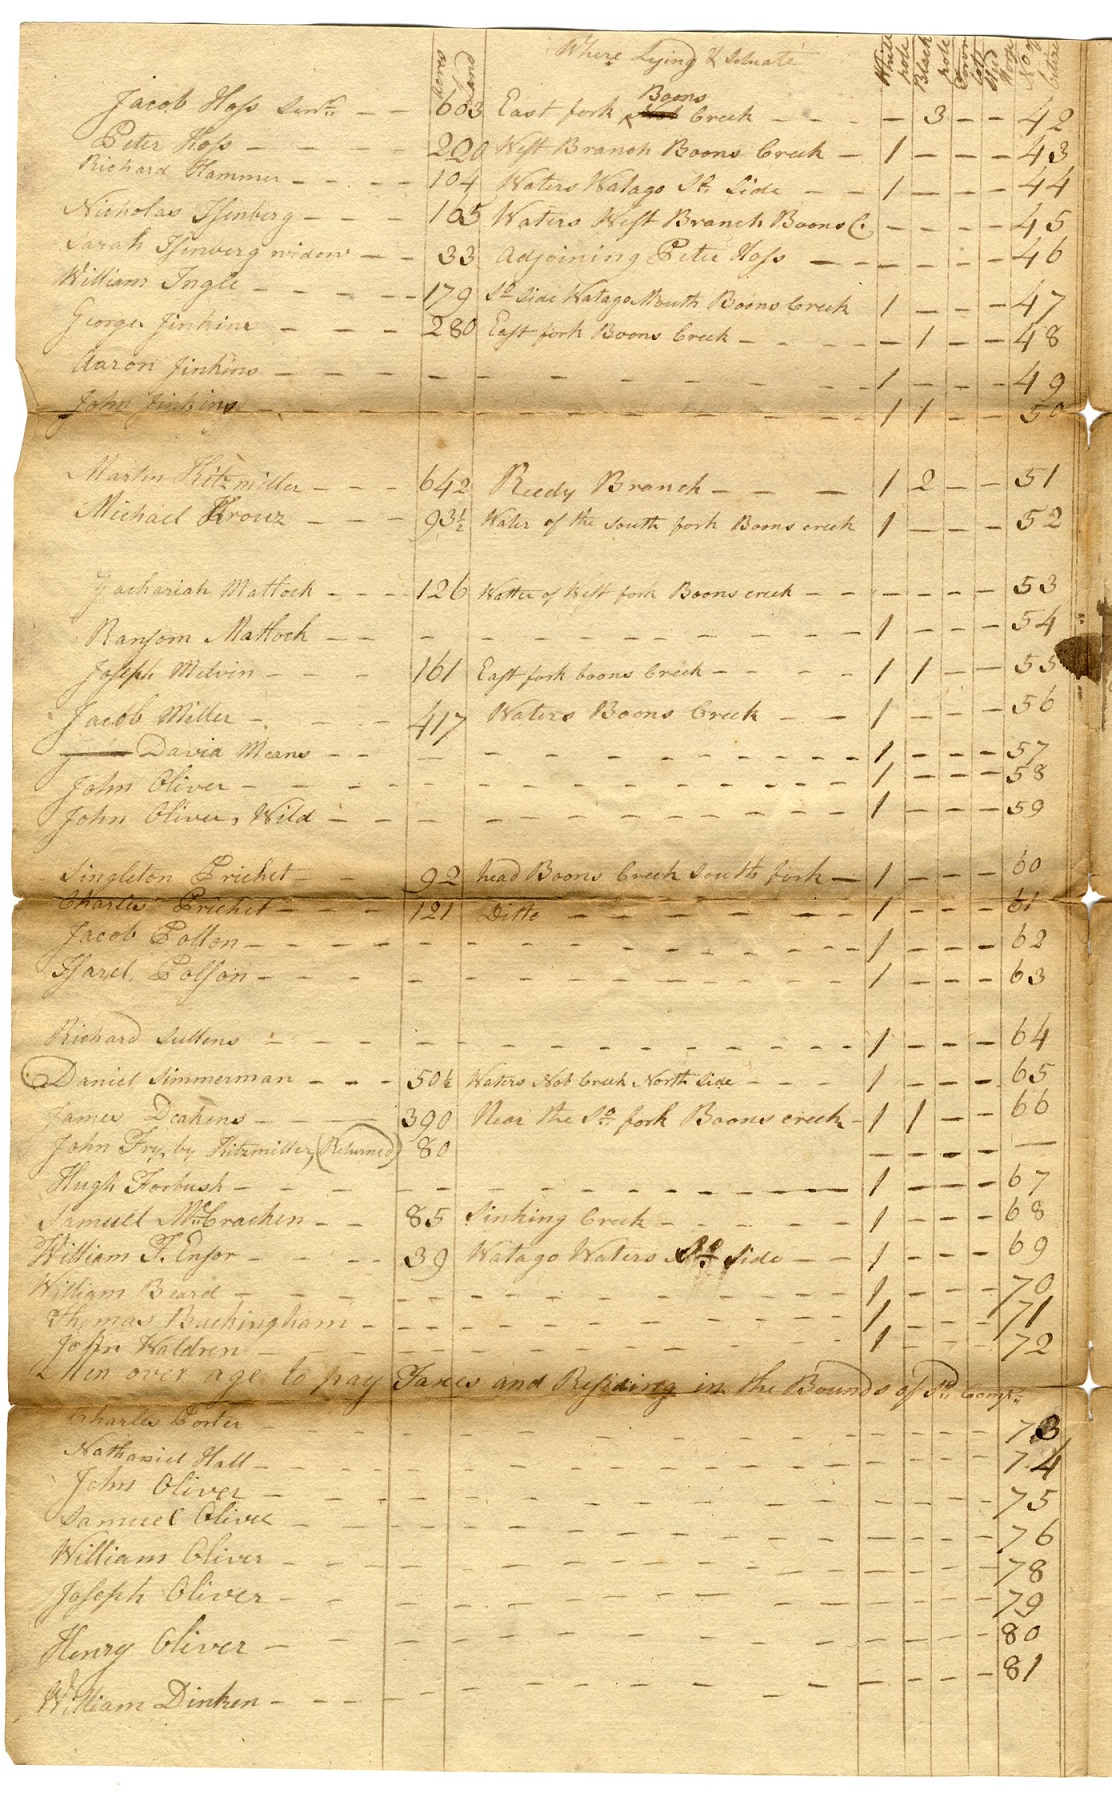 acres land Where Lying & Situate White pole Black pole Town lots Stud Horse No. of
Jacob Hoss Senr. 603 East fork Boons Creek 3 42
Peter Hoss 220 West Branch Boons Creek 1 43
Richard Hammer 104 Waters Watago So. Side 1 44
Nicholas Isenberg 105 Waters West Branch Boons C. 45
Sarah Isenberg widow 33 Adjoining Peter Hoss 46
William Ingle 179 So. Side Watago Mouth Boons Creek 1 47
George Jinkins 280 East fork Boons Creek 1 48
Aaron Jinkins 1 49
John Jinkins 1 1 50
Martin Kitzmiller 642 Reedy Branch 1 2 51
Michael Krouz 93½ Water of the South fork Boons creek 1 52
Zachariah Matlock 126 Watter of West fork Boons creek 53
Ransom Matlock 1 54
Joseph Melvin 161 East fork boons Creek 1 1 55
Jacob Miller 417 Waters Boons Creek 1 56
David Means 1 57
John Oliver 1 58
John Oliver, Wild 1 59
Singleton Prichet 92 head Boons Creek South fork 1 60
Charles Prichet 121 Ditto 1 61
Jacob Polson 1 62
Isarel Polson 1 63
Richard Sullens 1 64
Daniel Simmerman 50½ Waters Nob Creek North Side 1 65
James Deakens 390 Near the So. fork Boons creek 1 1 66
John Fry, by Kitzmiller, (Returned) 80
Hugh Forbush 1 67
Samuel McCracken 85 Sinking Creek 1 68
William T. Ensor 39 Watago Waters So. Side 1 69
William Beard 1 70
Thomas Buckingham 1 71
John Waldren 1 72
Men over age to pay Taxes and Residing in the Bounds of Sd. Compy.
Charles Porter 73
Nathaniel Hall 74
John Oliver 75
Samuel Oliver 76
William Oliver 78
Joseph Oliver 79
Henry Oliver 80
William Dinken 81